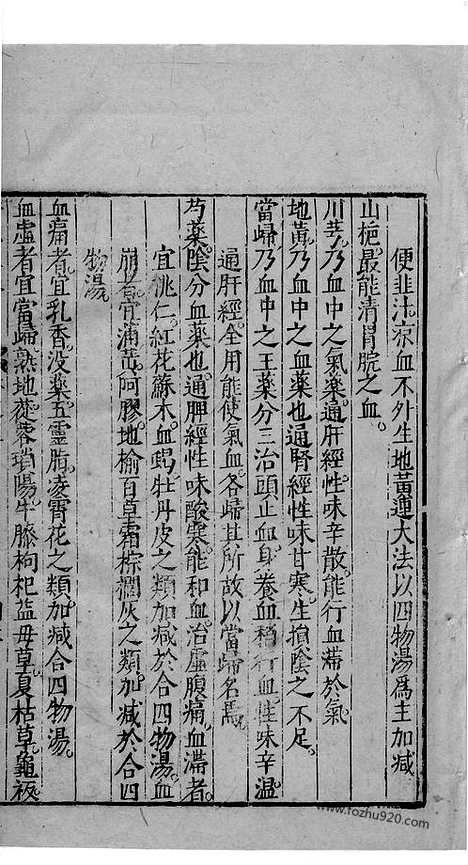 便韭汁凉血不外生地黃連大法以四物湯爲主加減
山梔最能清胃脘之血
川芎乃血中之氣藥通肝經性味辛散能行血滯於氣
地黃乃血中之血藥也通腎經性味甘寒生損陰之不足
當歸乃血中之王藥分三治頭止血身養血稍行血性味辛溫
通肝經全用能使氣血各歸其所故以當歸名焉
芍藥陰分血藥也通脾經性味酸寒能和血治虛腹痛血滯者
宜桃仁紅花蘇木血竭牡丹皮之類加減於合四物湯血
崩者宜蒲黃阿膠地榆百草霜棕櫚灰之類加減於合四
物湯
血痛者宜乳香没藥五靈脂凌霄花之類加減合四物湯
血虛者宜當歸熟地蓯蓉瑣陽牛膝枸杞益母草夏枯草龜板
www.fozhu920.com